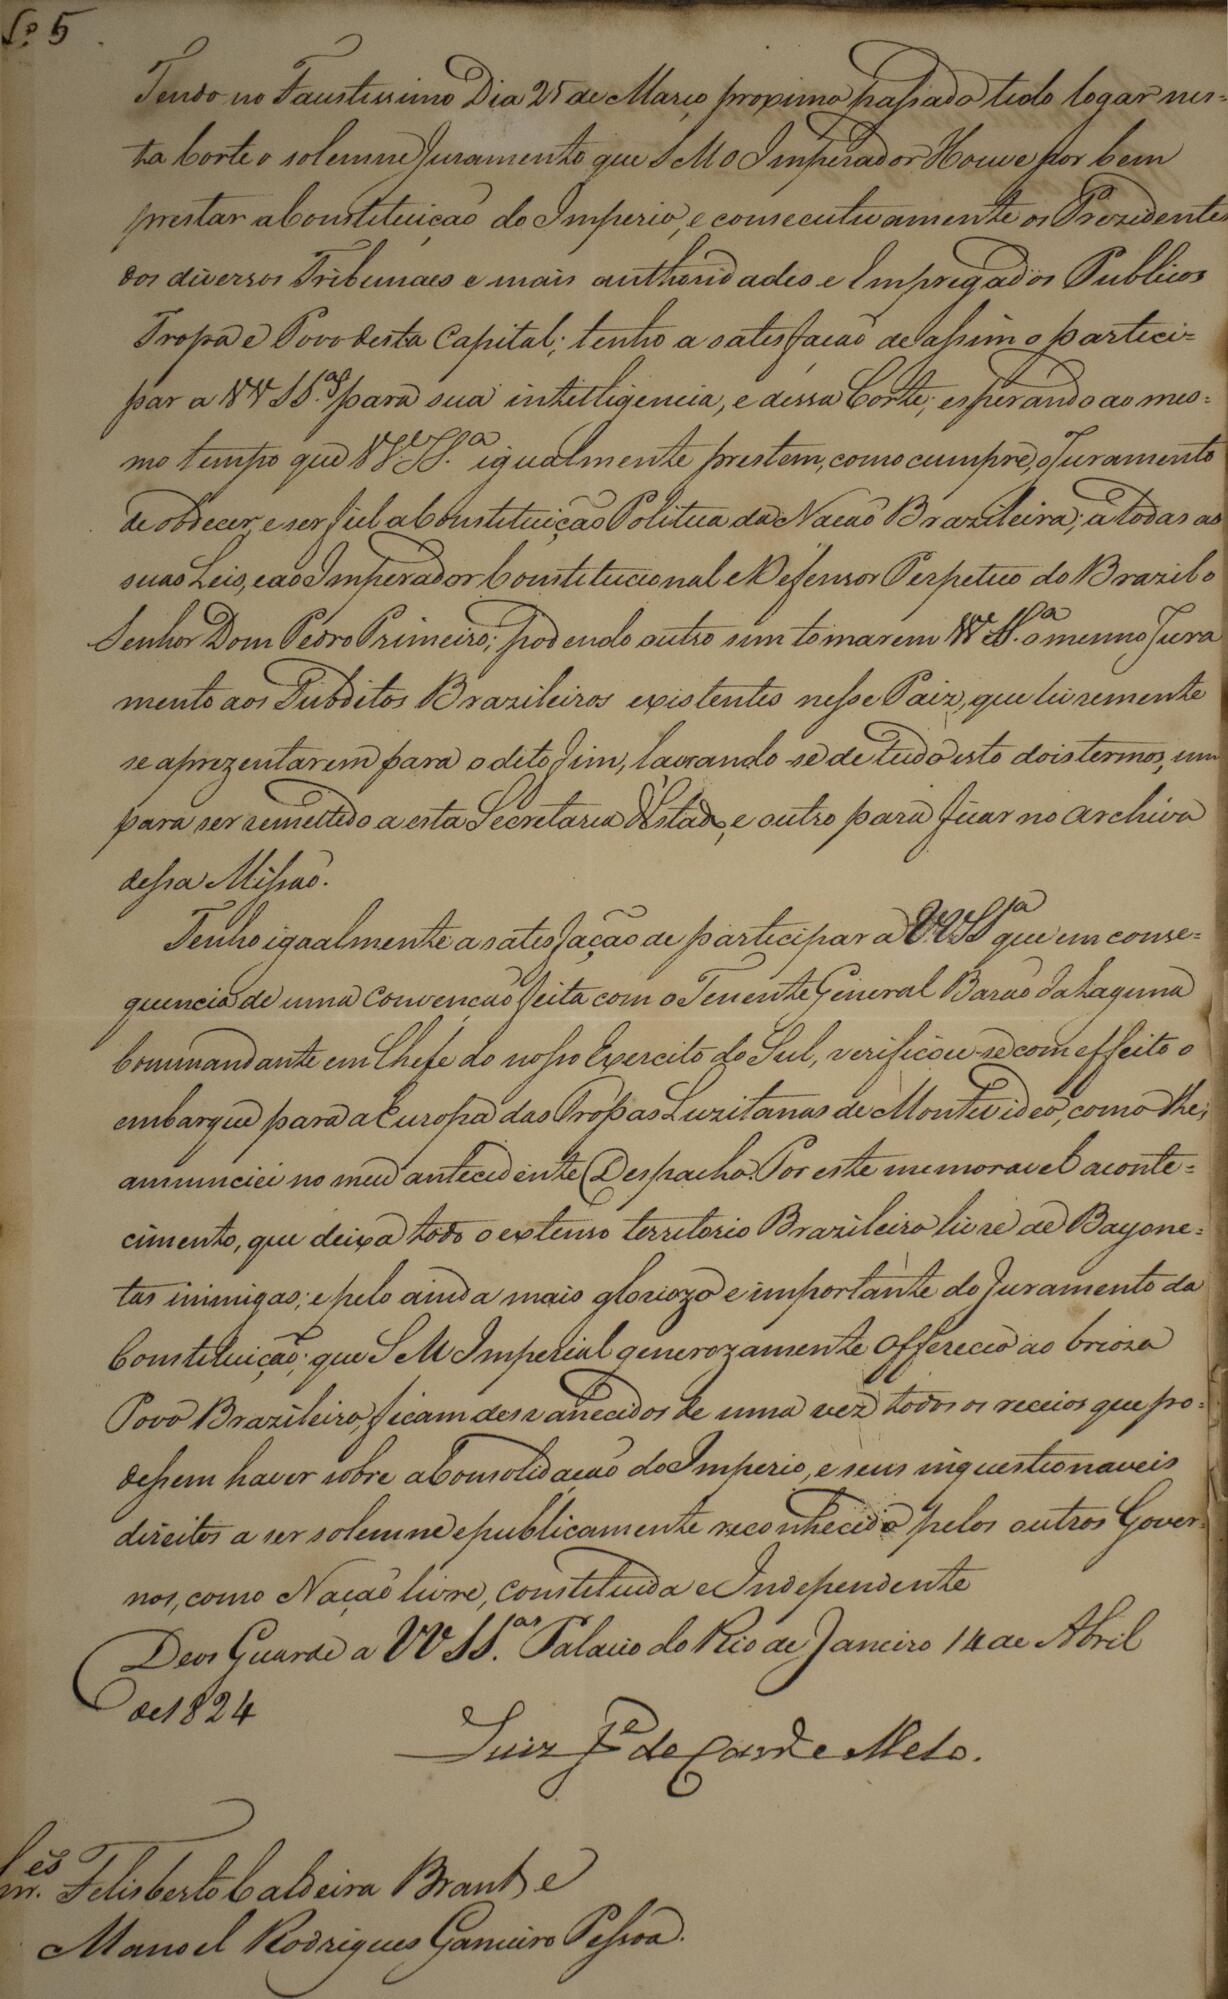 N.º 5
Tendo no Faustissimo Dia 25 de Março proximo passado tido logar nes=
ta Corte o solemne Juramento que S M O Imperador Houve por bem
prestar a Constituiçaõ do Imperio, e consecutivamente os Prezidentes
dos diversos Tribunaes e mais authoridades e Impregados Publicos
Tropa e Povo desta Capital; tenho a satisfacaõ de assim o partici=
par a VV SS.as para sua intelligencia, e dessa Corte; esperando ao mes=
mo tempo que VV. SS.a igualmente prestem, como cumpre, o Juramento
de obdecer, e ser fiel a Constituiçaõ Politica da Nacaõ Brazileira; a todas as
suas Leis, e ao Imperador Constitucional e Defensor Perpetuo do Brazil o
Senhor Dom Pedro Primeiro; podendo outro sim tomarem VV SS.a o mesmo Jura
mento aos Subditos Brazileiros existentes nesse Paiz, que livremente
se aprezentarem para o dito fim, lavrando-se de tudo isto dois termos, um
para ser remettido a esta Secretaria d'Estado, e outro para ficar no archivo
dessa Missaõ.
Tenho igaalmente a satisfaçaõ de participar a VV SS.a que em conse=
quencia de uma Convençaõ feita com o Tenente General Baraõ da Laguna
Commandante em Chefe do nosso Exercito do Sul, verificou-se com effeito o
embarque para a Europa das Tropas Luzitanas de Montevideo, como lhe,
annunciei no meu antecedente Despacho. Por este memoravel aconte=
cimento, que deixa todo o extenso territorio Brazileiro livre de Bayone=
tas inimigas; e pelo ainda mais gloriozo e importante do Juramento da
Constituiçaõ; que S M Imperial generozamente offereceo ao brioso
Povo Brazileiro, ficam desvanecidos de uma vez todos os receios que po=
dessem haver sobre a Consolidaçaõ do Imperio, e seus inquestionaveis
direitos a ser solemne e publicamente reconhecido pelos outros Gover=
nos, como Naçaõ livre, constituida e Independente
Deos Guarde a VV SS.as Palacio do Rio de Janeiro 14 de Abril
de 1824
Luiz Je de Carv.e Melo.
Felisberto Caldeira Brant e
Manoel Rodrigues Gameiro Pessoa.